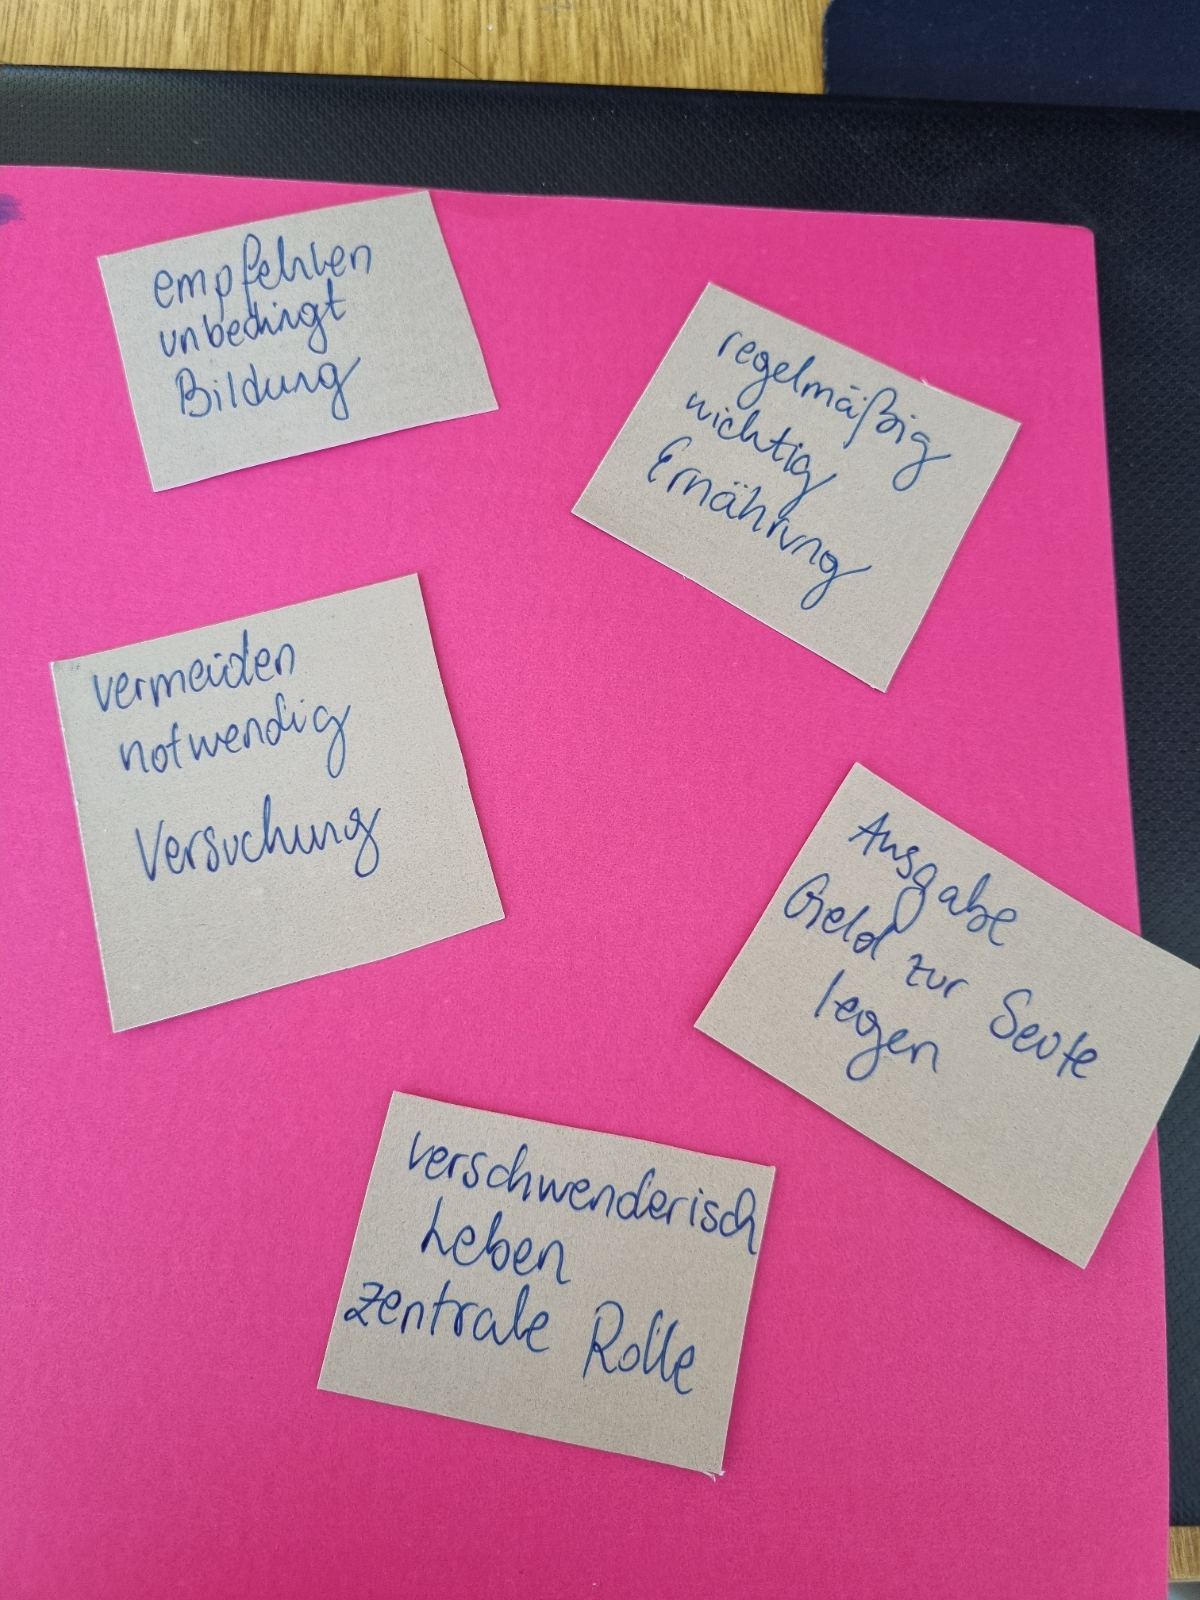 empfehlen
unbedingt
Bildung
regelmäßig
wichtig
Ernährung
vermeiden
notwendig
Versuchung
Ausgabe
Geld zur Seite
legen
verschwenderisch
Leben
zentrale Rolle